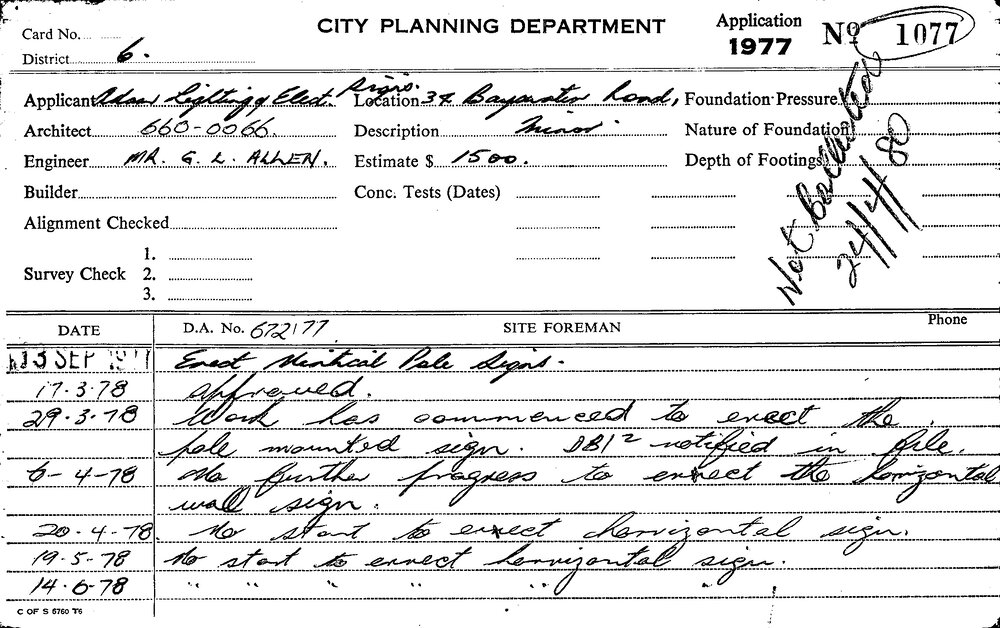 CITY PLANNING DEPARTMENT
Card No.
District 6.
Application 1977 No 1077
Applicant Lighting & Elect. Signs. Location 34 Bayswater Road, Foundation Pressure
Architect 660-0066. Description Minor. Nature of Foundation
Engineer MR. G. L. ALLEN. Estimate $ 1500. Depth of Footings
Builder Conc. Tests (Dates)
Alignment Checked
1.
Survey Check 2.
3.
Not
24/4/80
DATE D.A. No. 672177 SITE FOREMAN Phone
13 SEP 1977 Erect Pole Signs.
17.3.78 approved.
29.3.78 Work has commenced to erect the
pole mounted sign. notified in file.
6-4-78 No further progress to errect the horizontal
wall sign.
20.4.78. No start to errect horizontal sign.
19.5-78 No start to errect horizontal sign.
14.6-78 " " " " " "
C OF S 6760 T6